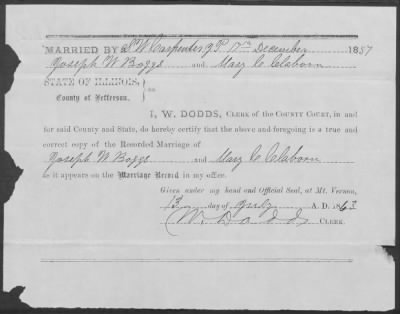 MARRIED BY S. W. Carpenter J. P. 17th December 1857
Joseph W Boggs and May C Claborn
STATE OF ILLINOIS,
County of Jefferson. } ss
I, W. DODDS, CLERK OF THE COUNTY COURT, in and
for said County and State, do hereby certify that the above and foregoing is a true and
correct copy of the Recorded Marriage of
Joseph W Boggs and May C Claborn
as it appears on the Marriage Record in my office.
Given under my hand and Official Seal, at Mt. Vernon,
13 day of July A. D. 1863
W. Dodds CLERK.